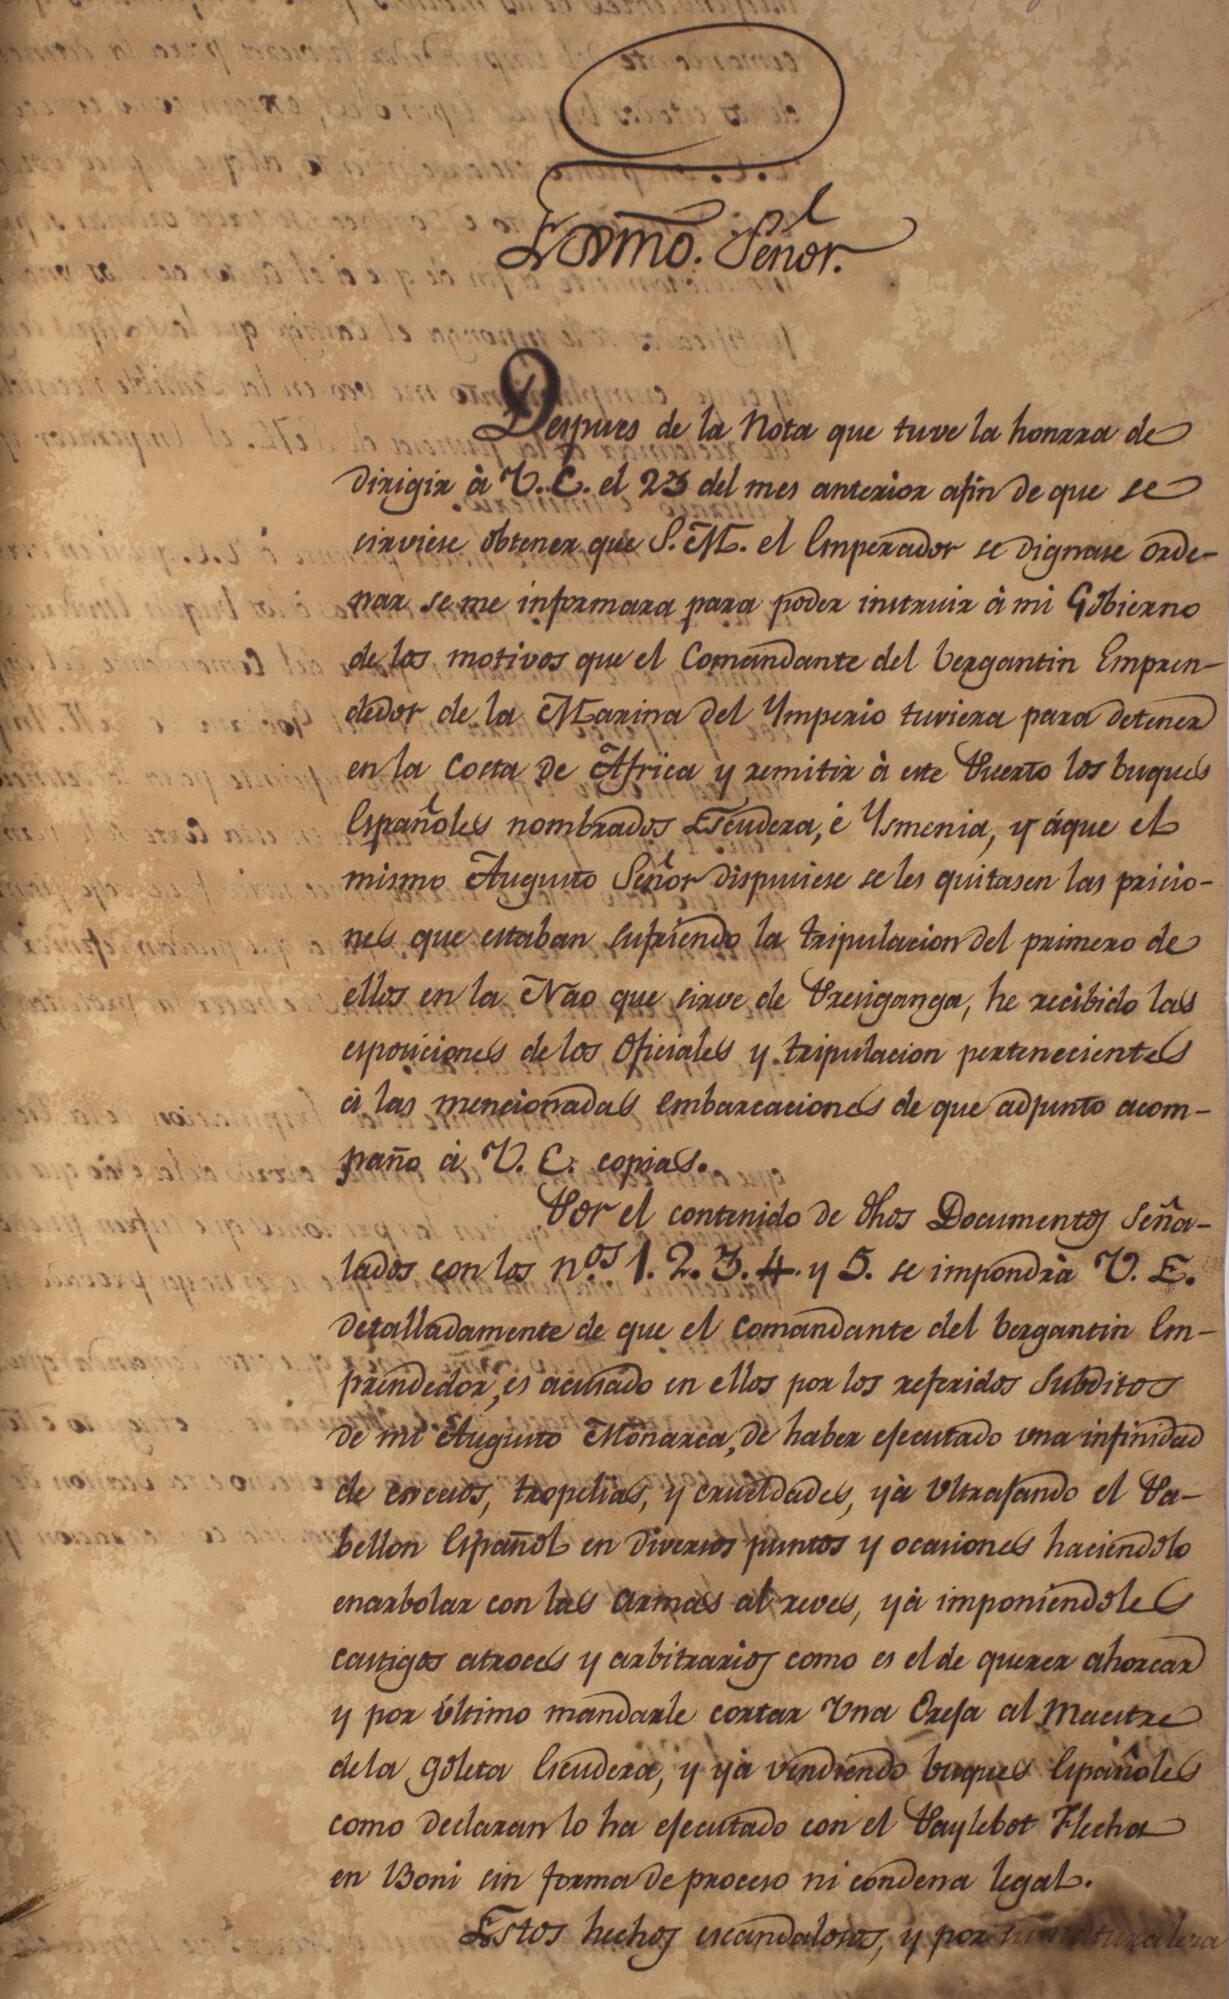 Exmo. Señor.
Despues de la Nota que tuve la honrra de
dirigir à V. E. el 23 del mes anterior afin de que se
sirviese obtener que S. M. el Emperador se dignase orde-
nar se me informara para poder instruir à mi Gobierno
de los motivos que el Comandante del bergantin Empren-
dedor de la Marina del Ymperio tuviera para detener
en la Costa de Africa y remitir à este Puerto los buques
Españoles nombrados Escudera, é Ysmenia, y áque el
mismo Augusto Señor dispusiese se les quitasen las pricio-
nes que estaban sufriendo la tripulacion del primero de
ellos en la Nao que sirve de Presiganga, he recibido las
esposiciones de los Oficiales y tripulacion pertenecientes
à las mencionadas embarcaciones de que adjunto acom-
paño à V. E. copias.
Por el contenido de dhos Documentos seña-
lados con los n.os 1. 2. 3. 4. y 5. se impondrà V. E.
detalladamente de que el Comandante del bergantin Em-
prendedor, es acusado en ellos por los referidos Subditos
de mi Augusto Monarca, de haber ejecutado una infinidad
de excesos, tropelias, y crueldades, yà Ultrajando el Pa-
bellon Español en diversos puntos y ocasiones haciendolo
enarbolar con las armas al reves, yà imponiendoles
castigos atroces y arbitrarios como es el de querer ahorcar
y por último mandarle cortar Una Oreja al Maestre
de la goleta Escudera, y yà vendiendo buques Españoles
como declaran lo ha ejecutado con el Paylebot Flecha
en Boni sin forma de proceso ni condena legal.
Estos hechos escandalosos, y por su naturaleza